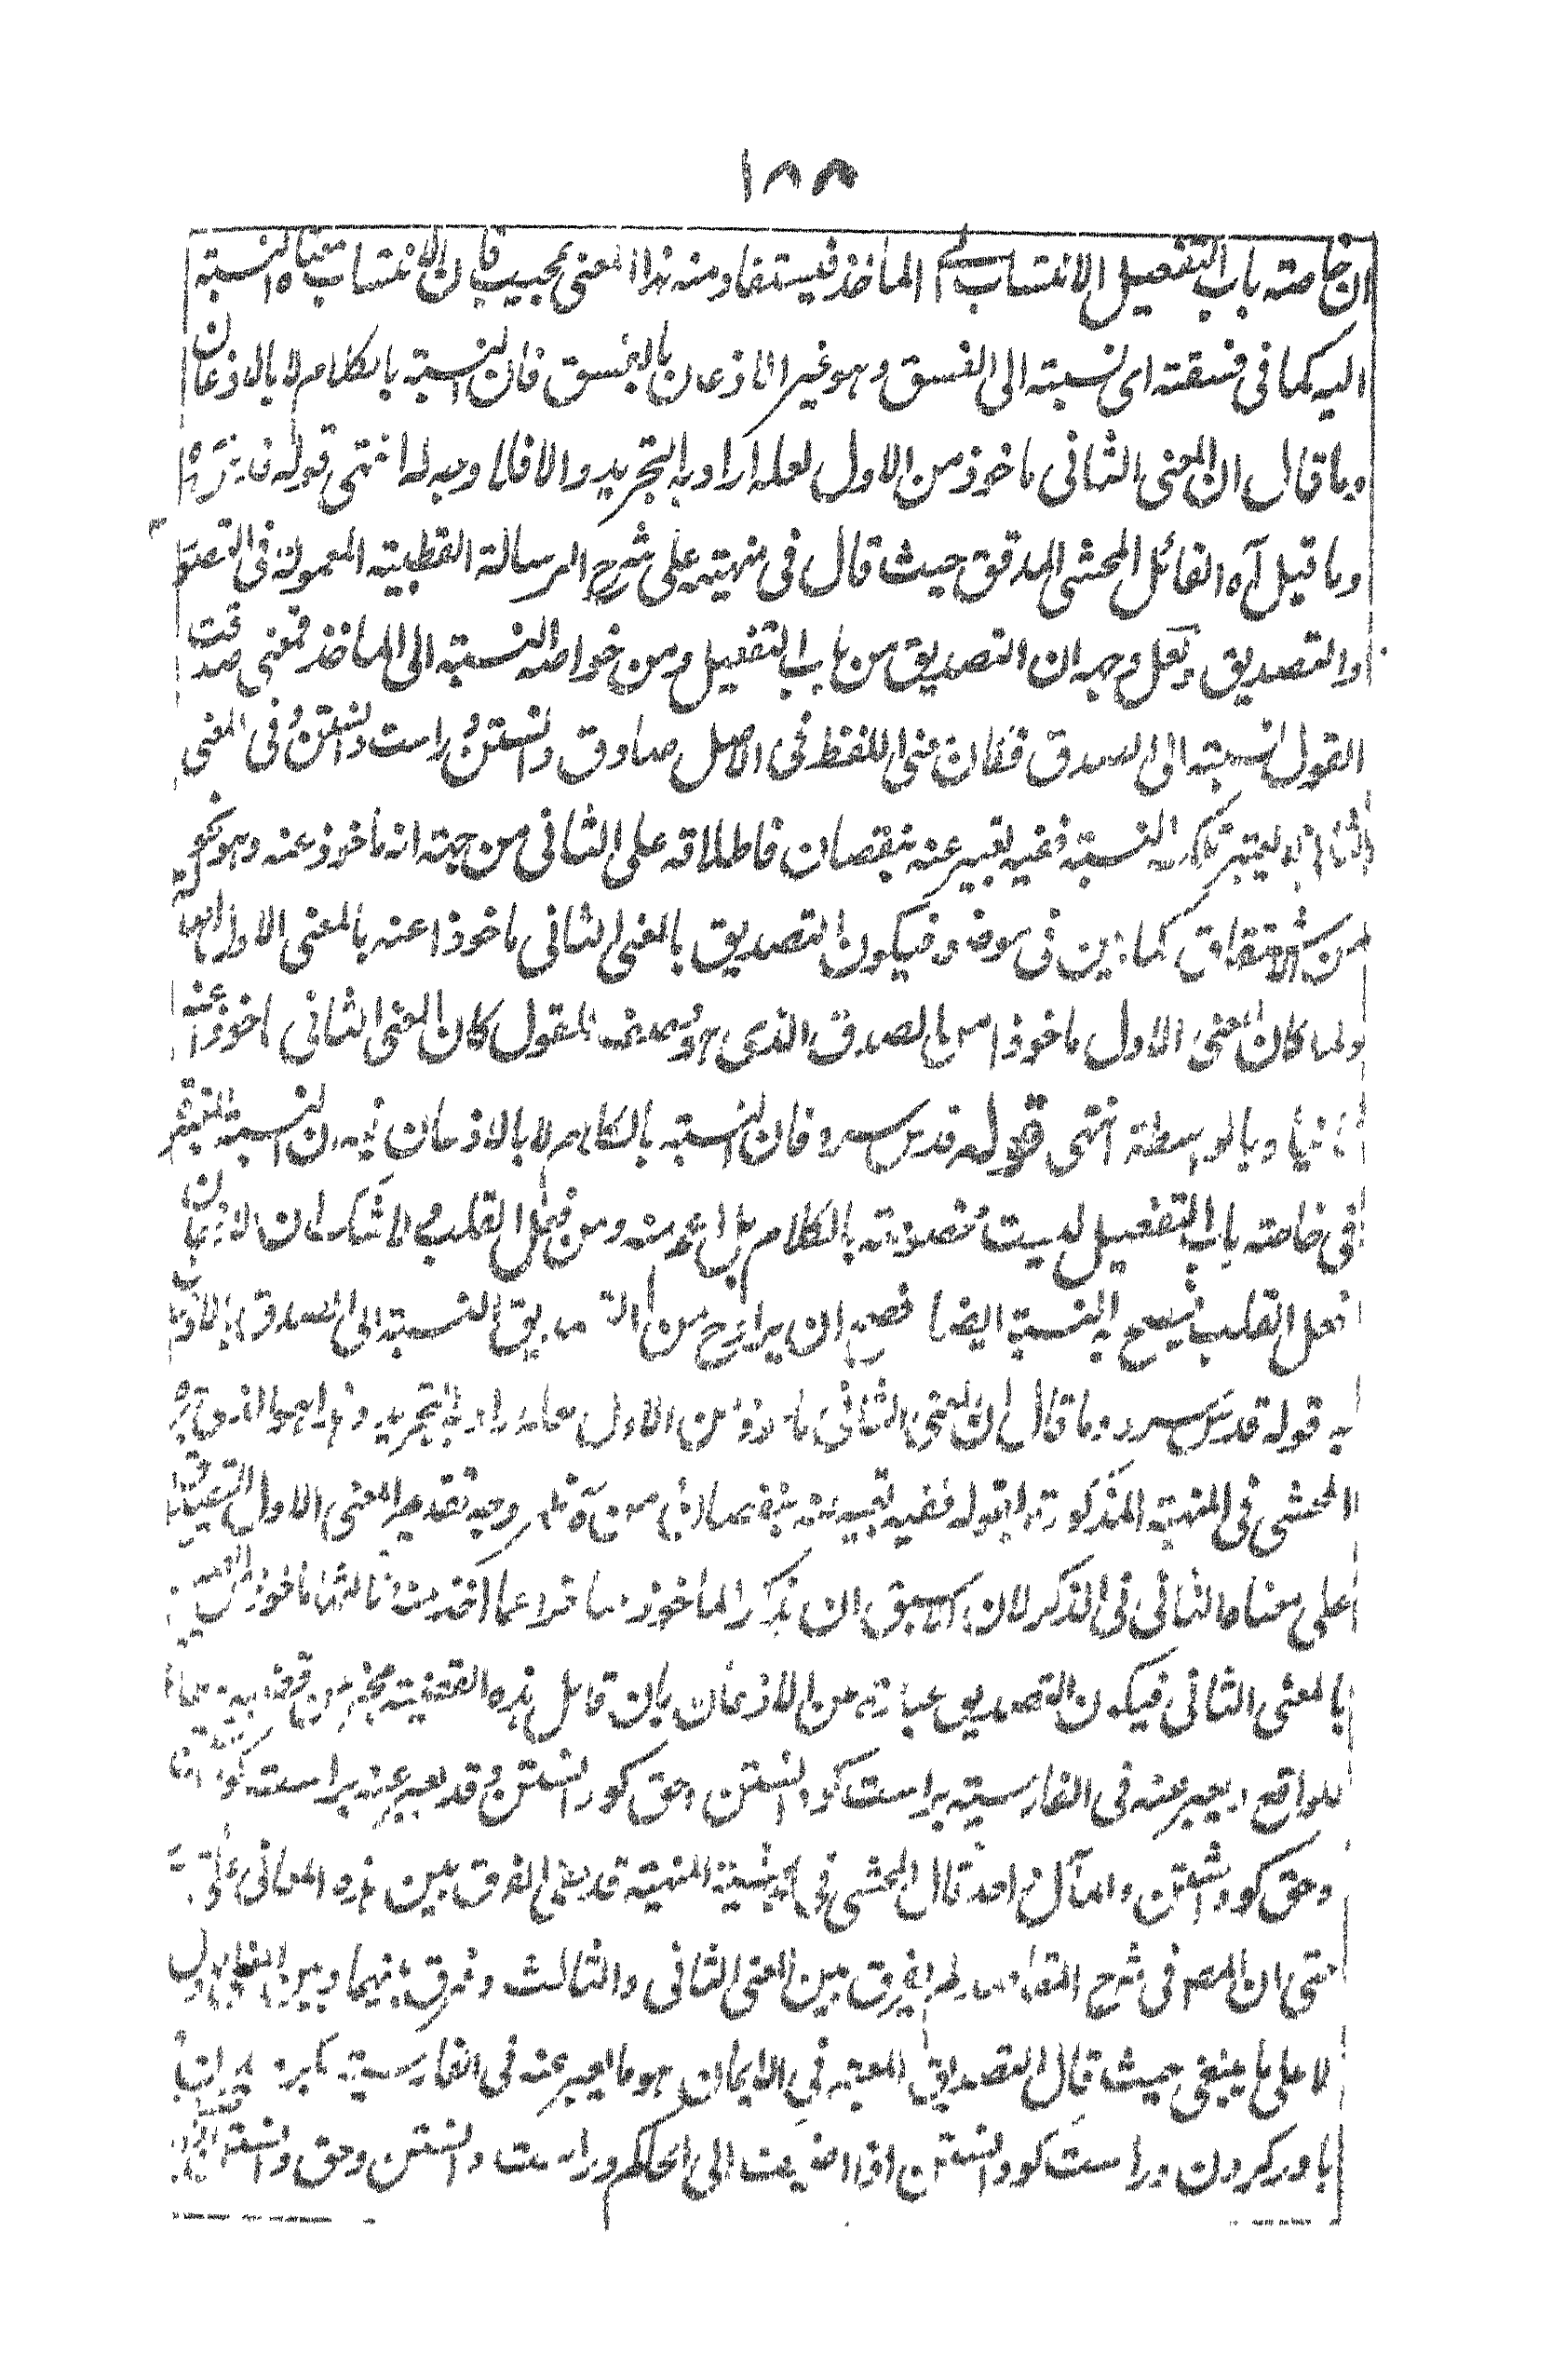 ١٨٨
ان خاصته باب التفعيل الانتساب الى الماخذ فيستفاد منه هذا المعنى عجيب فان الانتساب معناه النسبته
اليه كما فى فسقته اى نسبته الى الفسق وهو غير الاذعان بالفسق فان النسبته بالكلام لا بالاذعان
وما قال ان المعنى الثانى ماخوذ من الاول لعله اراد به التجريد والا فلا وجه له انتهى قوله
وما قيل آه القائل المحشى المدقق حيث قال فى منهيته على شرح الرسالة القطبية المعمولة فى التصور
والتصديق ولعل وجهه ان التصديق من باب التفعيل ومن خواصه النسبته الى الماخذ فمعنى صدقت
القول نسبته الى الصدق فكان معنى اللفظ فى الاصل صادق دانستن وراست دانستن وفى المعنى
الثانى لا يعتبر تلك النسبته ففيه تعبير عنه بنقصان فاطلاقه على الثانى من جهته انه ماخوذ عنه وهو نحو
من الاشتقاق كما بين فى موضعه فيكون التصديق بالمعنى الثانى ماخوذا عنه بالمعنى الاول
ولما كان المعنى الاول ماخوذا من الصدق الذى هو القول كان المعنى الثانى ماخوذا عنه
ثانيا وبالواسطة انتهى قوله قدس سره فان النسبته بالكلام لا بالاذعان فيه ان النسبته المعتبرة
فى خاصته باب التفعيل ليست مخصوصته بالكلام بل اعم منه ومن فعل القلب ولا شك ان الاذعان
فعل القلب فيصح به النسبته ايضا فصح ان يراد من التصديق النسبته الى الصدق بالاذعان
قوله قدس سره وما قال ان المعنى الثانى ماخوذ من الاول لعله اراد به التجريد وهذا هو الذى
المحشى فى المنهية المذكورة بقوله ففيه تعبير عنه بنقصان وجه تقديم المعنى الاول
على معناه الثانى فى الذكر لان الاسبق ان يذكر الماخوذ عما اخذ منه ثالثها ماخوذ من
بالمعنى الثانى فيكون التصديق عبارة من الاذعان بان قائل هذه القضية مخبر
للواقع ويعبر عنه فى الفارسيته براست كو دانستن وحق كو دانستن وقد يعبر عنه براست كو
وحق كو داشتن والمآل واحد قال المحشى فى حاشية المنهية قد يخفى الفرق بين هذه المعانى
حتى ان المص فى شرح المقاصد لم يفرق بين المعنى الثانى والثالث وفرق بينهما وبين الاول
لا على ما ينبغى حيث قال التصديق المعتبر فى الايمان هو ما يعبر عنه فى الفارسيته
باور كردن وراست كو دانستن اذا اضيف الى الحاكم وراست دانستن وحق دانستن